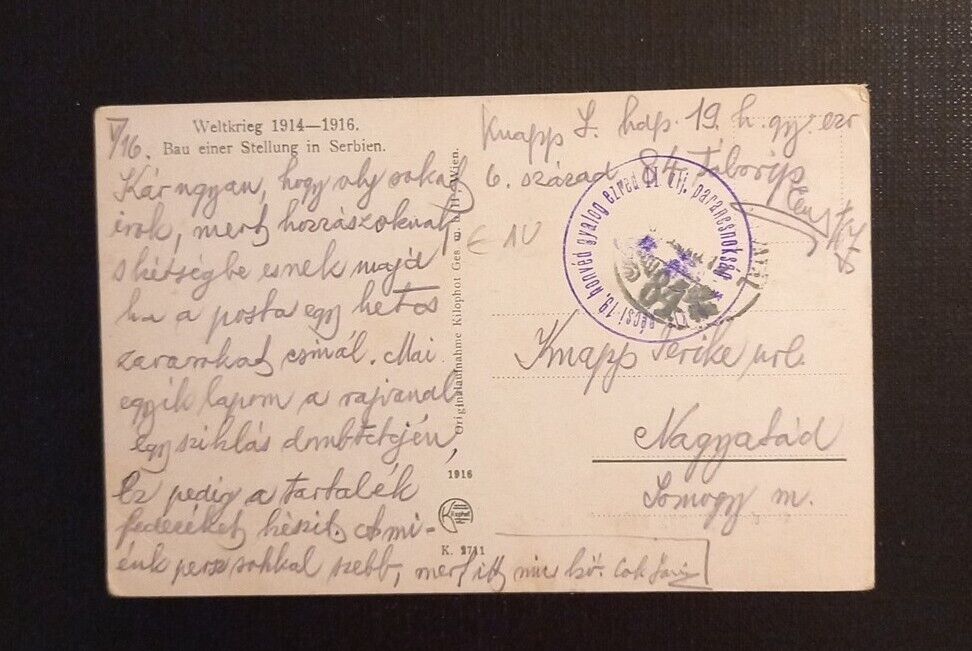 V/16.
Weltkrieg 1914—1916.
Bau einer Stellung in Serbien.
Kár ugyan, hogy oly sokat
irok, mert hozzászoknak
s kétségbe esnek majd
ha a posta egy hetes
zavarokat csinál. Mai
egyik lapom a rajvonal
egy sziklás dombtetején,
Ez pedig a tartalék
fedezéket készit. A mi-
énk persze sokkal szebb, mert itt nincs kő. Csók
Originalaufnahme Kilophot Ges. m. b. H., Wien.
1916
K. 2711
Knapp J. hdp. 19. h. gy. ezr
6. század 84. Táborip.
m. kir. pécsi 19. honvéd gyalog ezred II. zlj. parancsnokság
84
€ 10
Knapp Terike url.
Nagyatád
Somogy m.